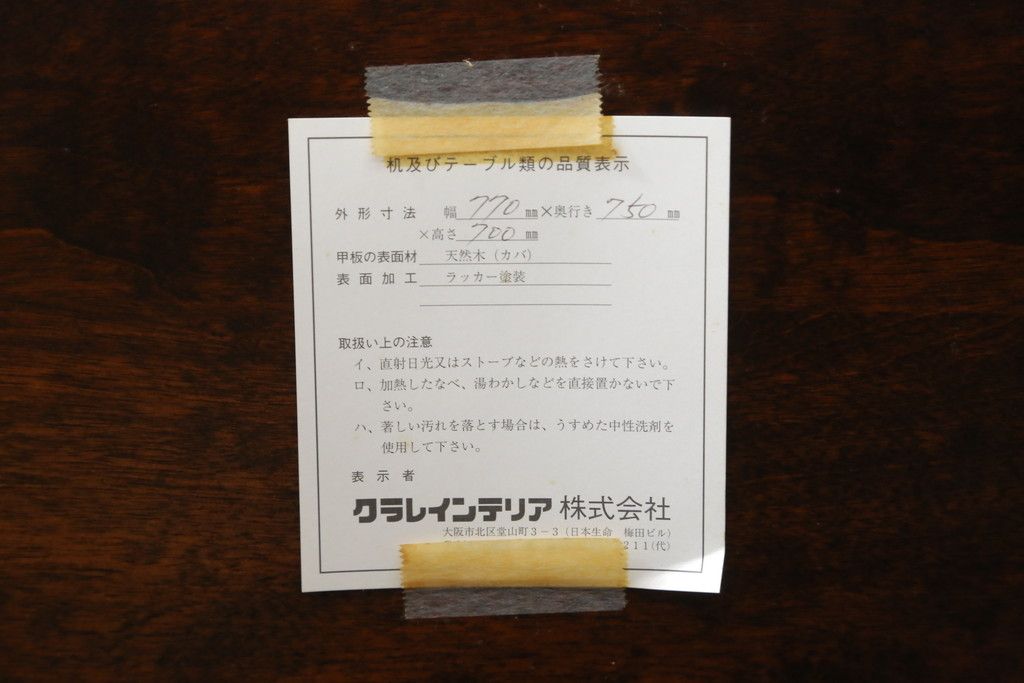 机及びテーブル類の品質表示
外形寸法 幅 770 ㎜×奥行き 750 ㎜
×高さ 700 ㎜
甲板の表面材 天然木（カバ）
表面加工 ラッカー塗装
取扱い上の注意
イ、直射日光又はストーブなどの熱をさけて下さい。
ロ、加熱したなべ、湯わかしなどを直接置かないで下
さい。
ハ、著しい汚れを落とす場合は、うすめた中性洗剤を
使用して下さい。
表示者
クラレインテリア 株式会社
大阪市北区堂山町３－３（日本生命 梅田ビル）
２１１（代）